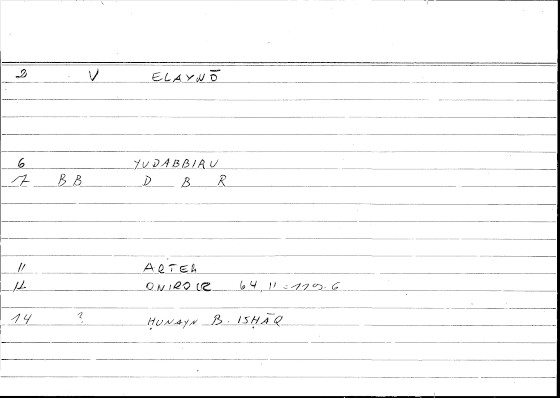 2 V ELAYNŌ
6 YUDABBIRU
7 BB D B R
11 ARTEM
12 ONIROCR 64, 11 = 119.6
14 ? ḤUNAYN B. ISḤĀQ